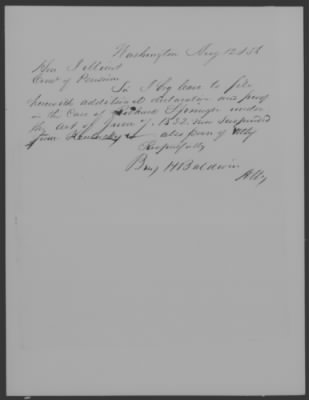 Washington Aug 12 1858
Hon J Minot
Comr of Pension
Sir I beg leave to file
herewith additional declaration and proof
in the Case of Richard Springer under
the act of June 7. 1832. now suspended
from Kentucky also power of Atty
Respectfully
Benj H Baldwin
Atty